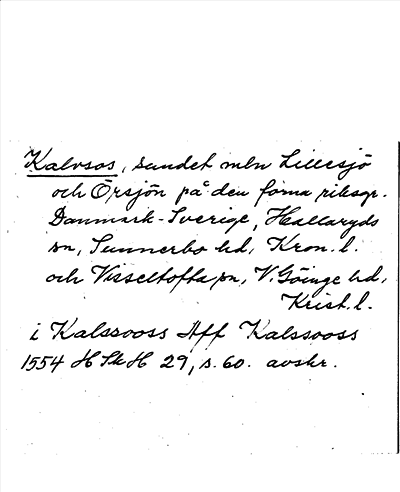 Kalvsos, sundet mln Lillesjö
och Örsjön på den forna riksgr.
Danmark-Sverige, Hallaryds
sn, Sunnerbo hd, Kron. l.
och Visseltofta sn, V. Göinge hd,
Krist. l.
i Kalssooss Aff Kalssooss
1554 H Sk H 29, s. 60. avskr.